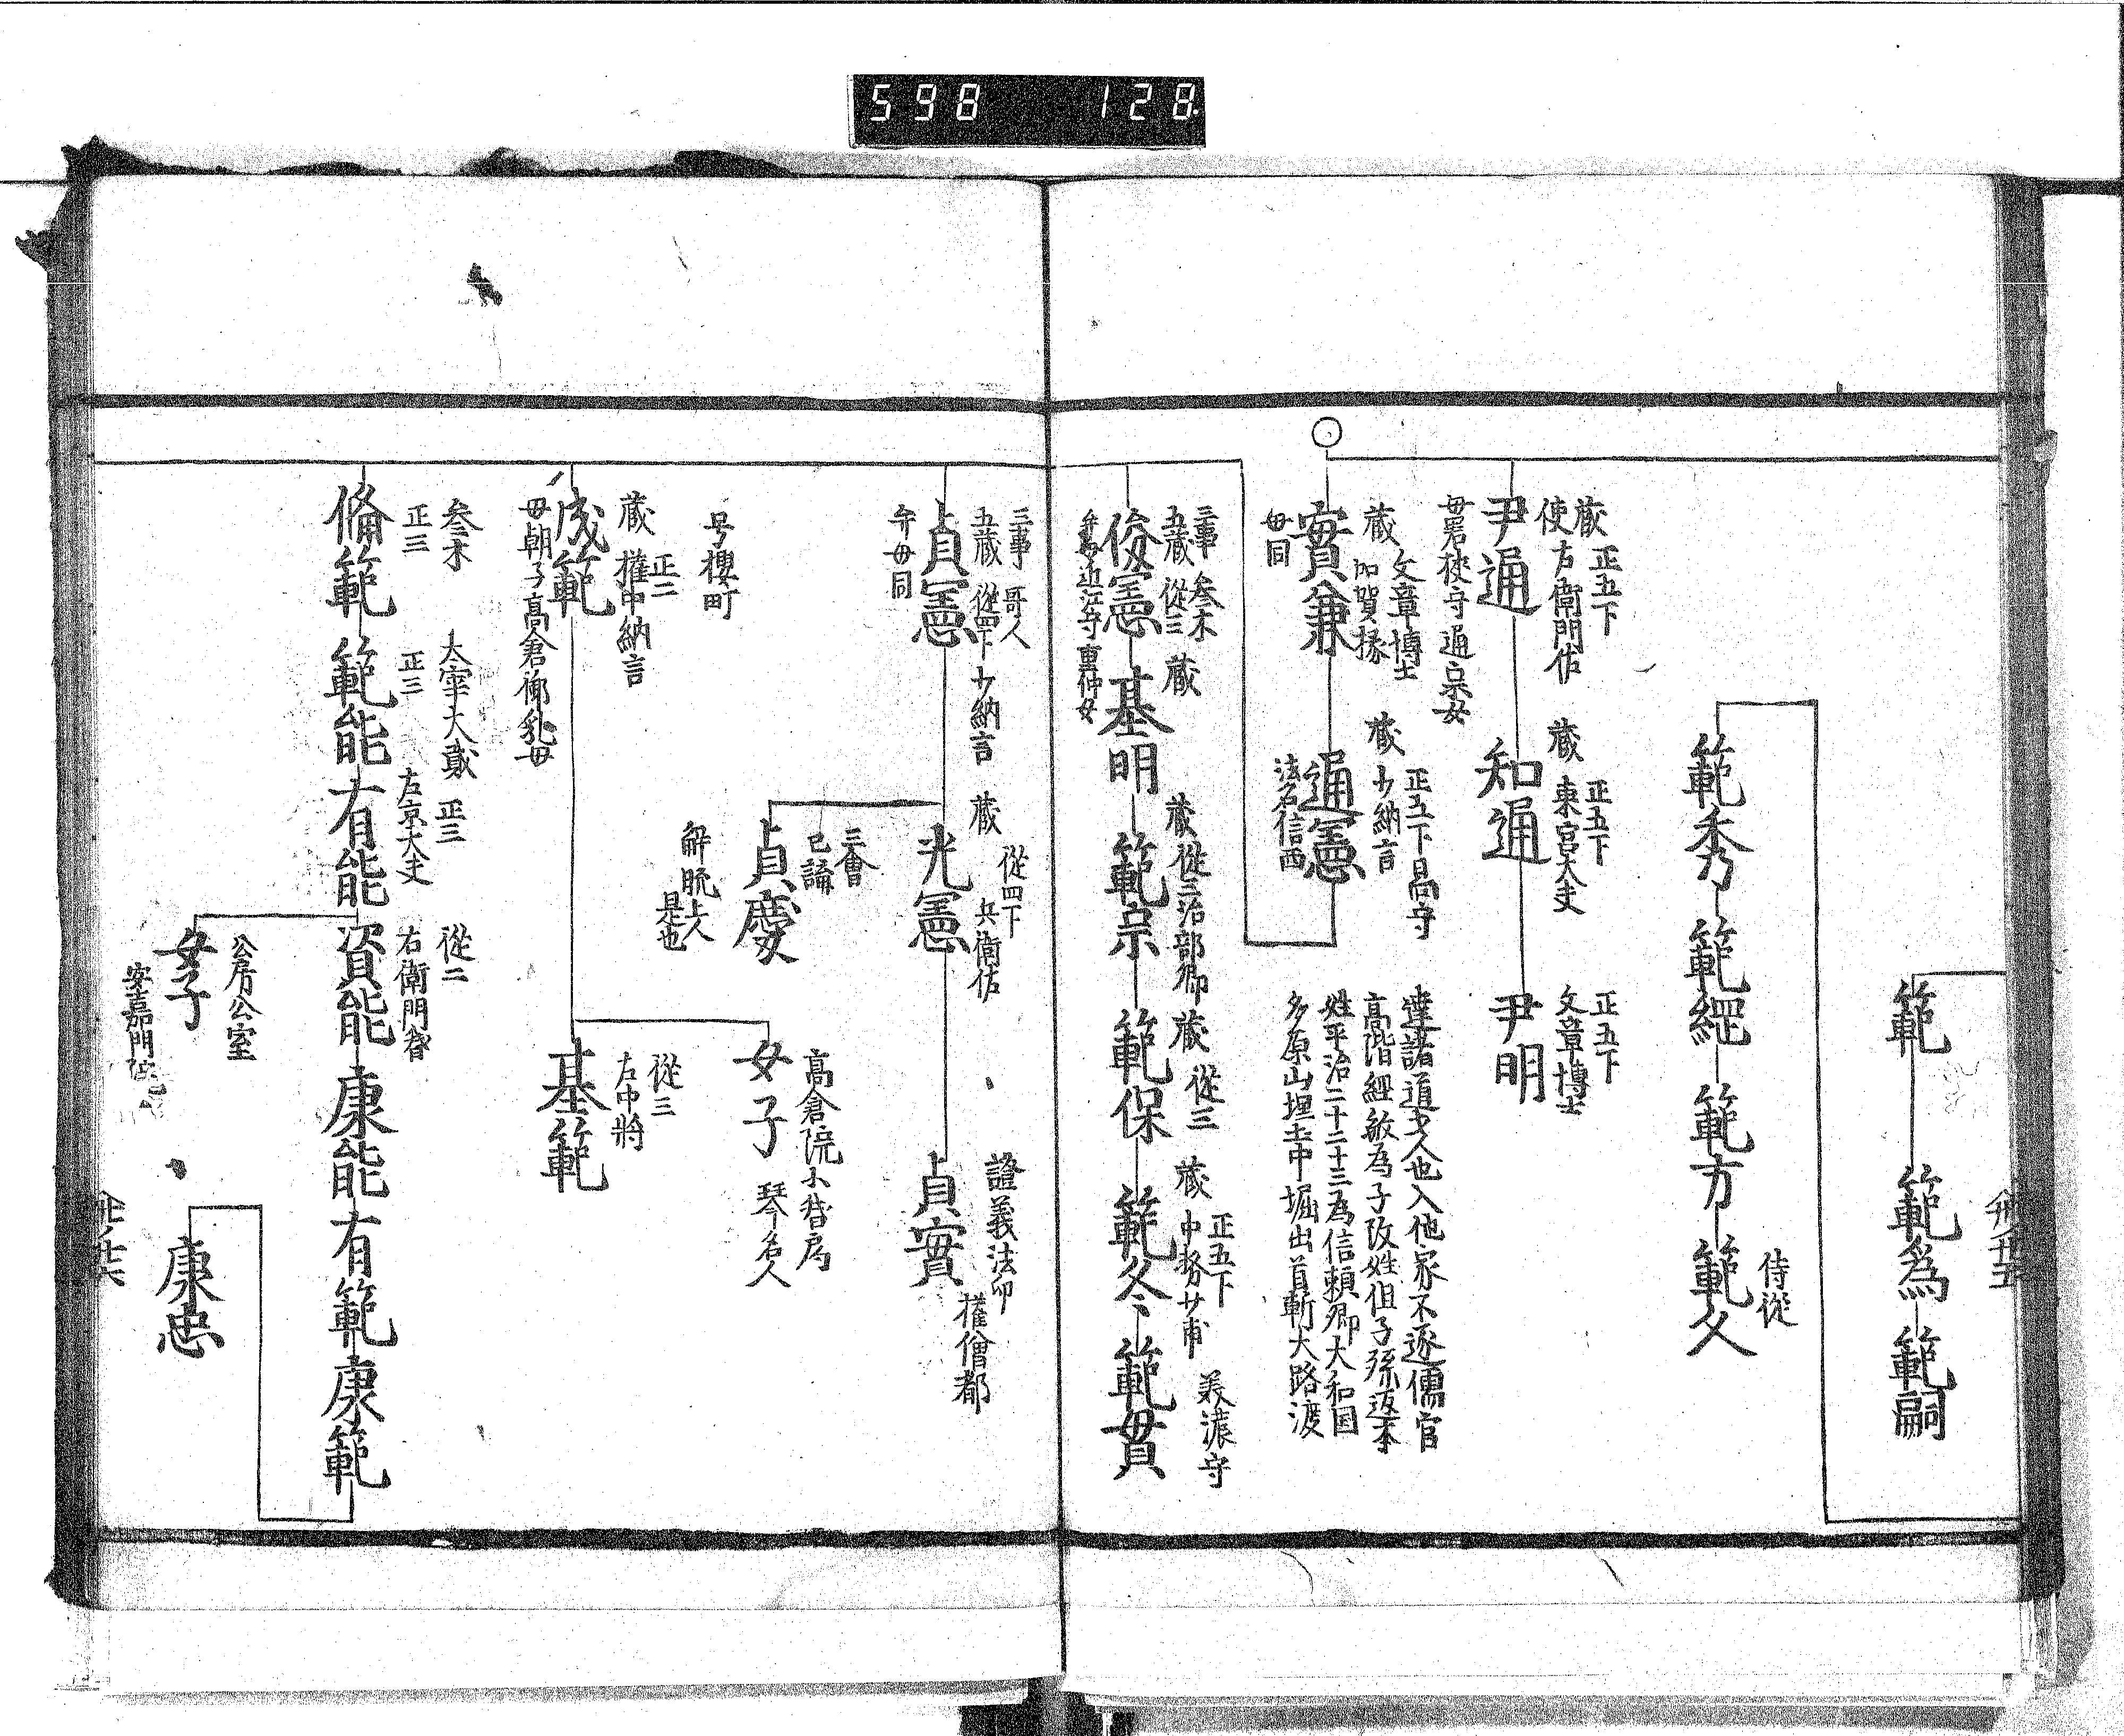 598 128
範
範爲
範嗣
範秀
範經
範方
侍從
範久
藏 正五下
使 左衞門佐
尹通
母若狹守通宗女
藏 正五下
東宮大夫
知通
正五下
文章博士
尹明
藏 文章博士
加賀掾
實兼
母同
藏 正五下日向守
少納言
通憲
法名信西
達諸道才人也入他家不遂儒官
高階經敏為子改姓但子孫返本
姓平治二十二十三為信賴卿大和国
多原山埋土中堀出首斬大路渡
三事 叅木
五藏 從三
俊憲
母近江守重仲女
藏
基明
藏 從三治部卿
範宗
藏 從三
範保
藏 正五下
中務少甫
範冬
美濃守
範貫
三事 哥人
五藏 從四下 少納言
貞憲
母同
藏 從四下
兵衞佐
光憲
證義法印
權僧都
貞實
三會
已講
貞慶
解脱上人
是也
号櫻町
藏 正二
權中納言
成範
母朝子高倉御乳母
高倉院小督局
女子
琴名人
從三
左中將
基範
叅木
正三
脩範
太宰大貳
正三
範能
正三
左京大夫
有能
從二
右衞門督
資能
康能
有範
康範
公房公室
女子
安嘉門院
康忠